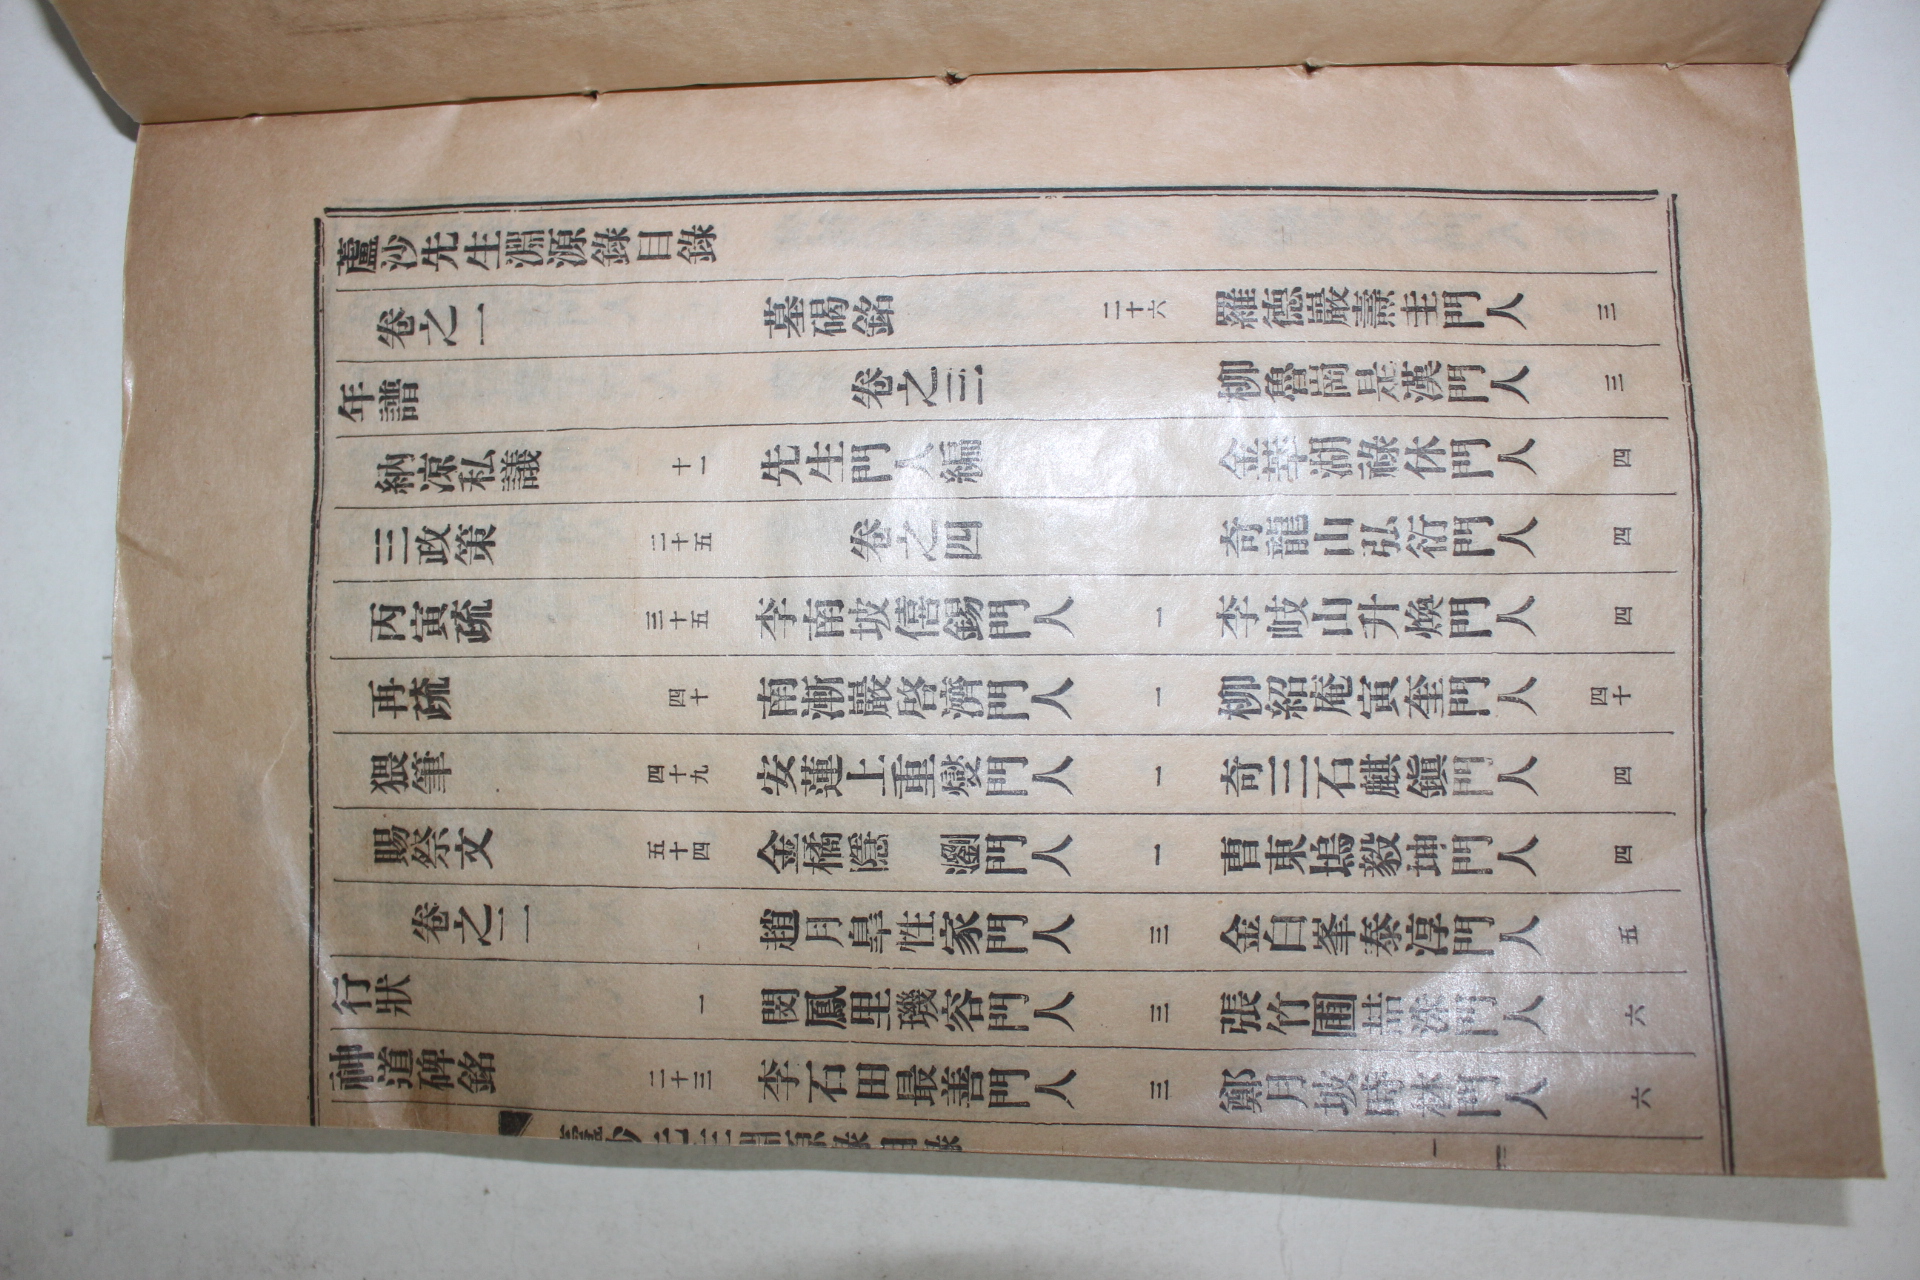 蘆沙先生淵源錄目錄
卷之一
年譜
納凉私議 十一
三政策 二十五
丙寅疏 三十五
再疏 四十
猥筆 四十九
賜祭文 五十四
卷之二
行狀 一
神道碑銘 二十三
墓碣銘 二十六
卷之三
先生門人編
卷之四
李南坡僖錫門人 一
南漸巖啓濟門人 一
安蓮上重燮門人 一
金橘隱瀏門人 一
趙月皐性家門人 三
閔鳳里璣容門人 三
李石田最善門人 三
羅德巖燾圭門人 三
柳魯崗是漢門人 三
金莘湖祿休門人 四
奇龍山弘衍門人 四
李岐山升煥門人 四
柳紹庵寅奎門人 四十
奇三石麒鎭門人 四
曹東塢毅坤門人 四
金白峯泰淳門人 五
張竹圃喆門人 六
鄭月坡時林門人 六